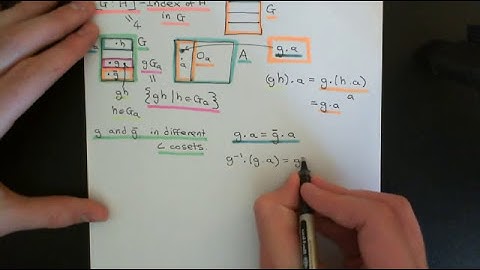 [G:H] - Index of H
in G
=4
G
·h
G
·g
·ḡ
gGₐ
gh
h∈Gₐ
=
{gh | h∈Gₐ}
·a
Oₐ
A
g.a
(gh).a = g.(h.a)
a
= g.a
g and ḡ in different
L cosets.
g.a = ḡ.a
g⁻¹.(g.a) = g